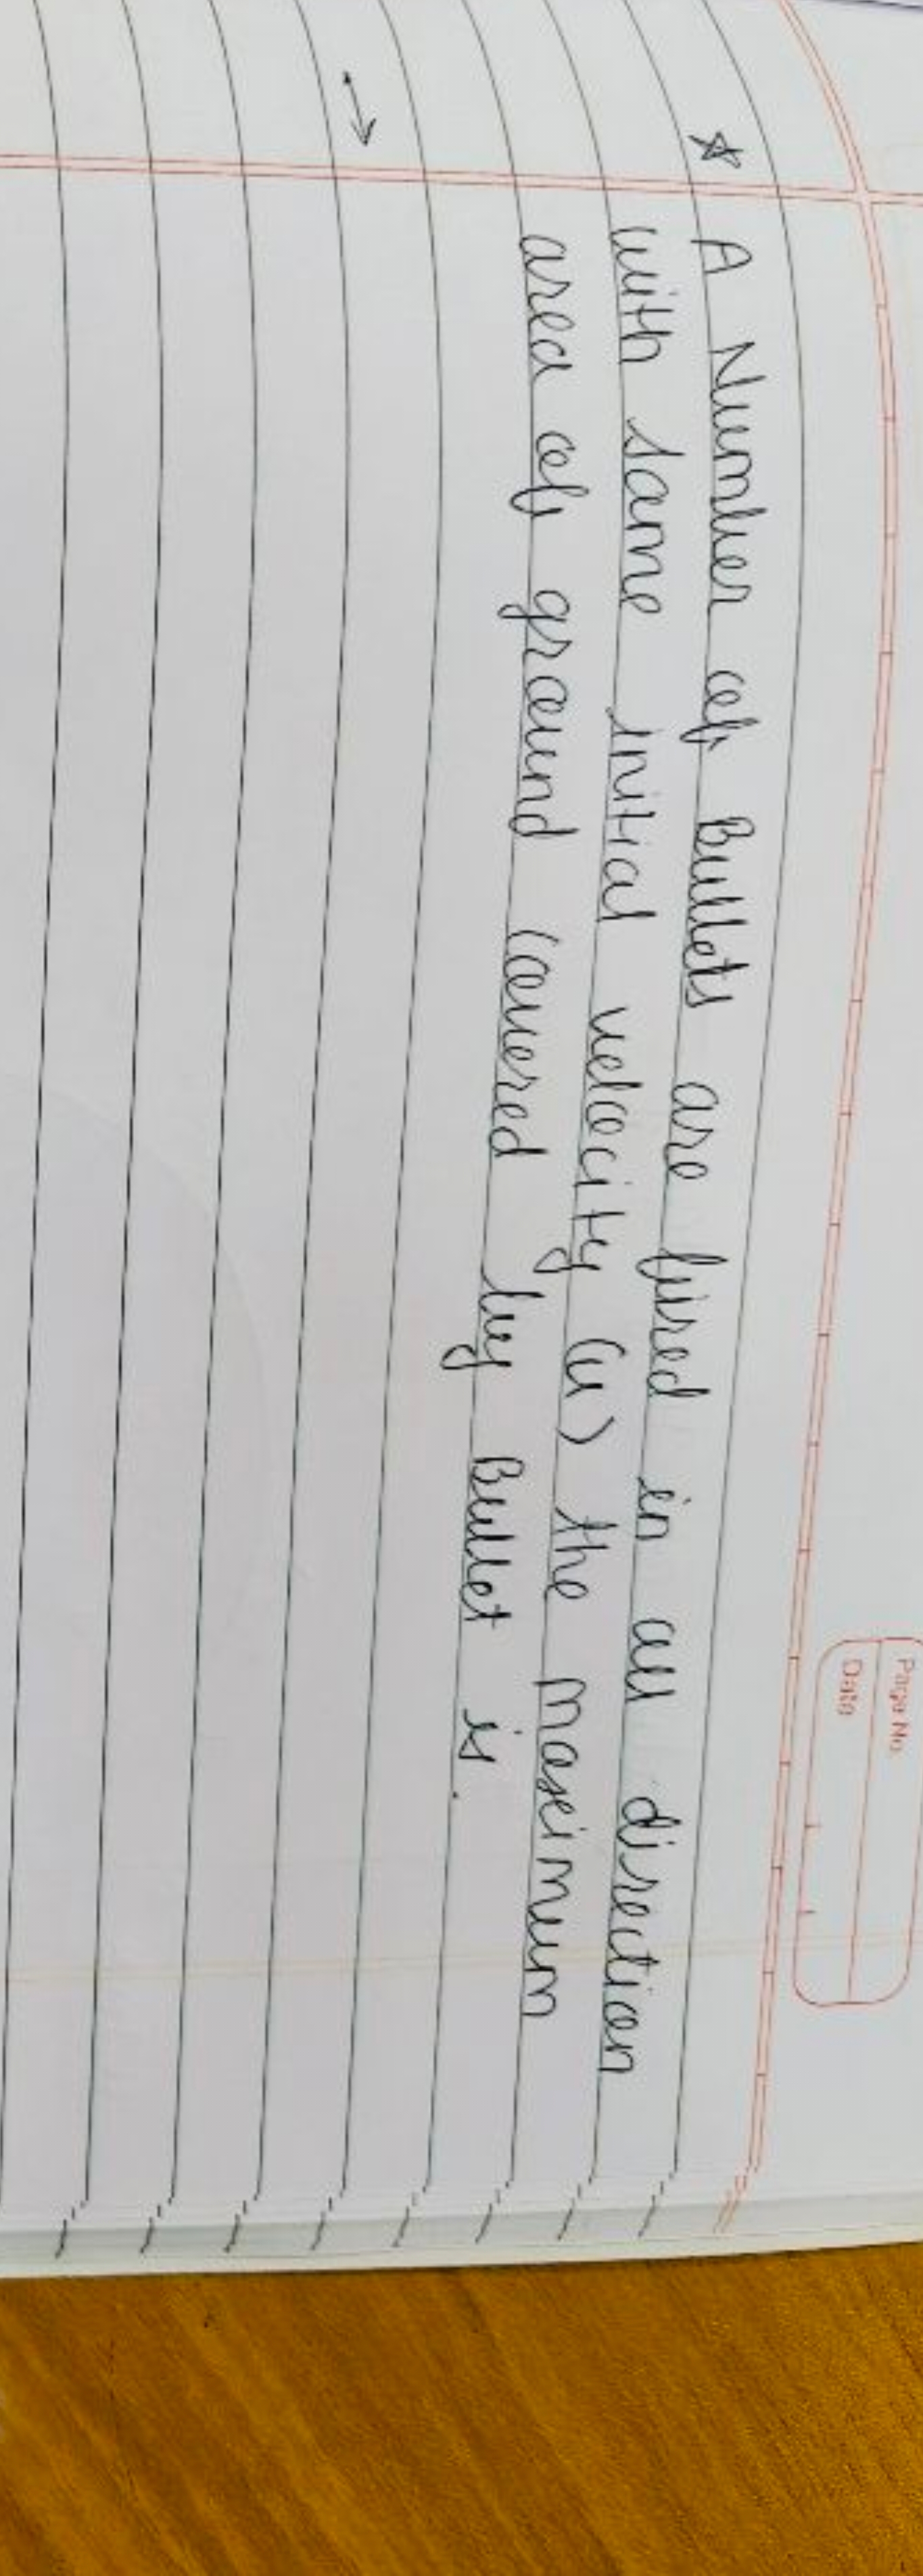 Page No.
Date
☆ A Number of Bullets are fired in all direction
with same initial velocity (u) the maximum
area of ground covered by Bullet is.
→